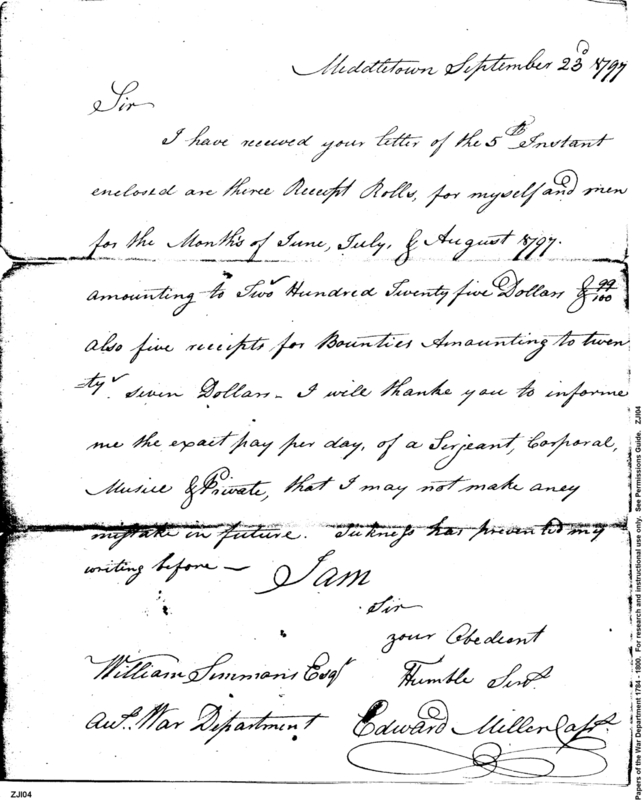 Middletown September 23d 1797
Sir
I have received your letter of the 5th Instant
enclosed are three Receipt Rolls, for myself and men
for the Months of June, July, & August 1797.
amounting to Two Hundred Twenty five Dollars & 99/100
also five receipts for Bounties Amounting to twen
ty seven Dollars - I will thanke you to informe
me the exact pay per day, of a Serjeant, Corporal,
Musice & Private, that I may not make aney
mistake in future. Sickness has prevented my
writing before —
I am
Sir
your Obedient
William Simmons Esqr Humble Servt
Aut. War Department Edward Miller Capt.
ZJI04
Papers of the War Department 1784 - 1800. For research and instructional use only. See Permissions Guide. ZJI04